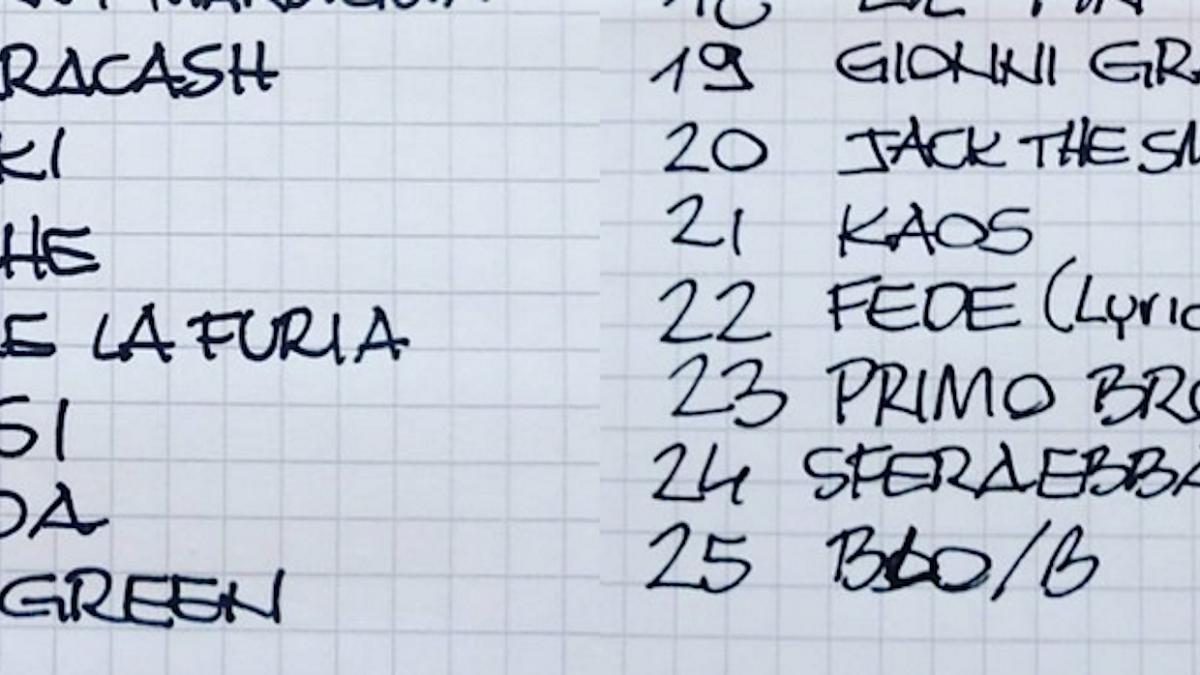 RACASH
KI
HE
E LA FURIA
SI
DA
GREEN
19 GIONNI GRA
20 JACK THE SM
21 KAOS
22 FEDE (Lyric
23 PRIMO BRO
24 SFERAEBBA
25 BLO/B